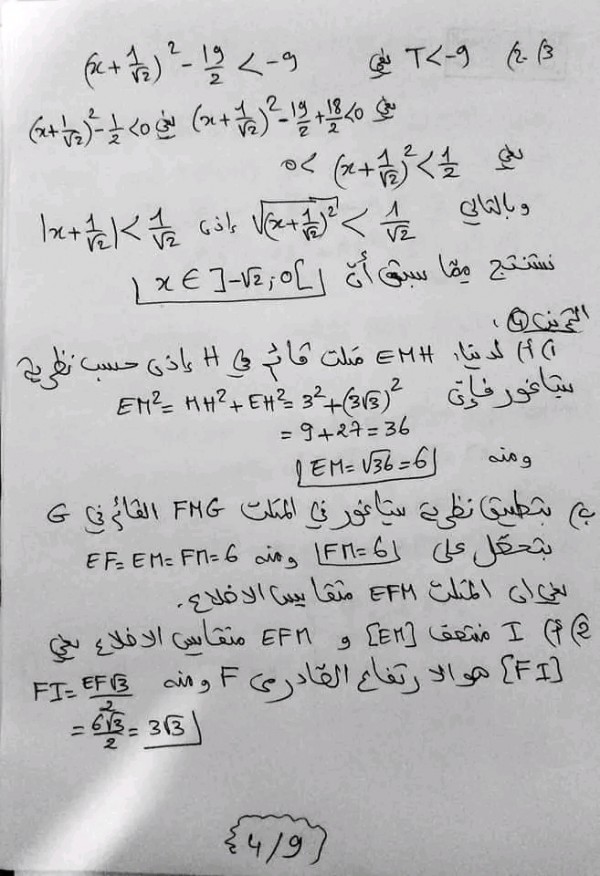 3) 2) T<-9 يعني (x + 1/√2)² - 19/2 < -9
يعني (x + 1/√2)² - 19/2 + 18/2 < 0 يعني (x + 1/√2)² - 1/2 < 0
يعني 0 < (x + 1/√2)² < 1/2
وبالتالي √(x + 1/√2)² < 1/√2 إذن |x + 1/√2| < 1/√2
نستنتج ممّا سبق أنّ x ∈ ]-√2 ; 0[
التمرين 4:
1) أ) لدينا، EMH مثلث قائم في H إذن حسب نظرية
بيتاغور فإنّ EM² = MH² + EH² = 3² + (3√3)²
= 9 + 27 = 36
ومنه EM = √36 = 6
ب) بتطبيق نظرية بيتاغور في المثلث FMG القائم في G
نتحصّل على FM = 6 ومنه EF = EM = FM = 6
يعني ان المثلث EFM متقايس الاضلاع.
2) أ) I منتصف [EM] و EFM متقايس الاضلاع يعني
[FI] هو الارتفاع الصادر من F ومنه FI = EF√3/2
= 6√3/2 = 3√3
4/9